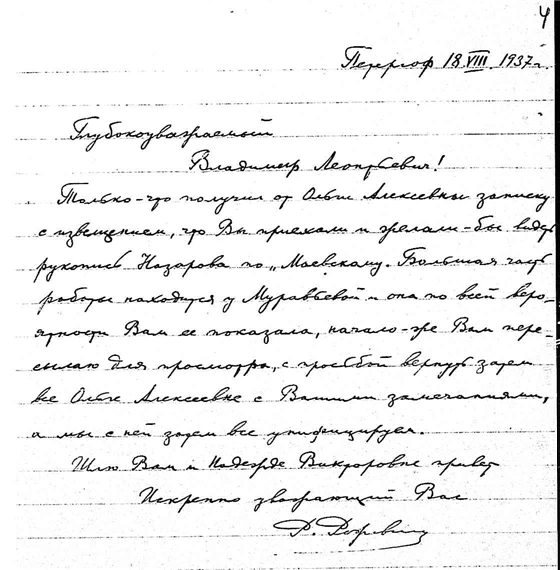 4
Петергоф 18 VIII 1937 г.
Глубокоуважаемый
Владимир Леонтьевич!
Только-что получил от Ольги Алексеевны записку
с извещением, что Вы приехали и желали-бы видеть
рукопись Назарова по „Маевскому. Большая часть
работы находится у Муравьевой и она по всей веро-
ятности Вам ее показала, начало-же Вам пере-
сылаю для просмотра, с просьбой вернуть затем
все Ольге Алексеевне с Вашими замечаниями,
а мы с ней затем все унифицируем.
Шлю Вам и Надежде Викторовне привет
Искренно уважающий Вас